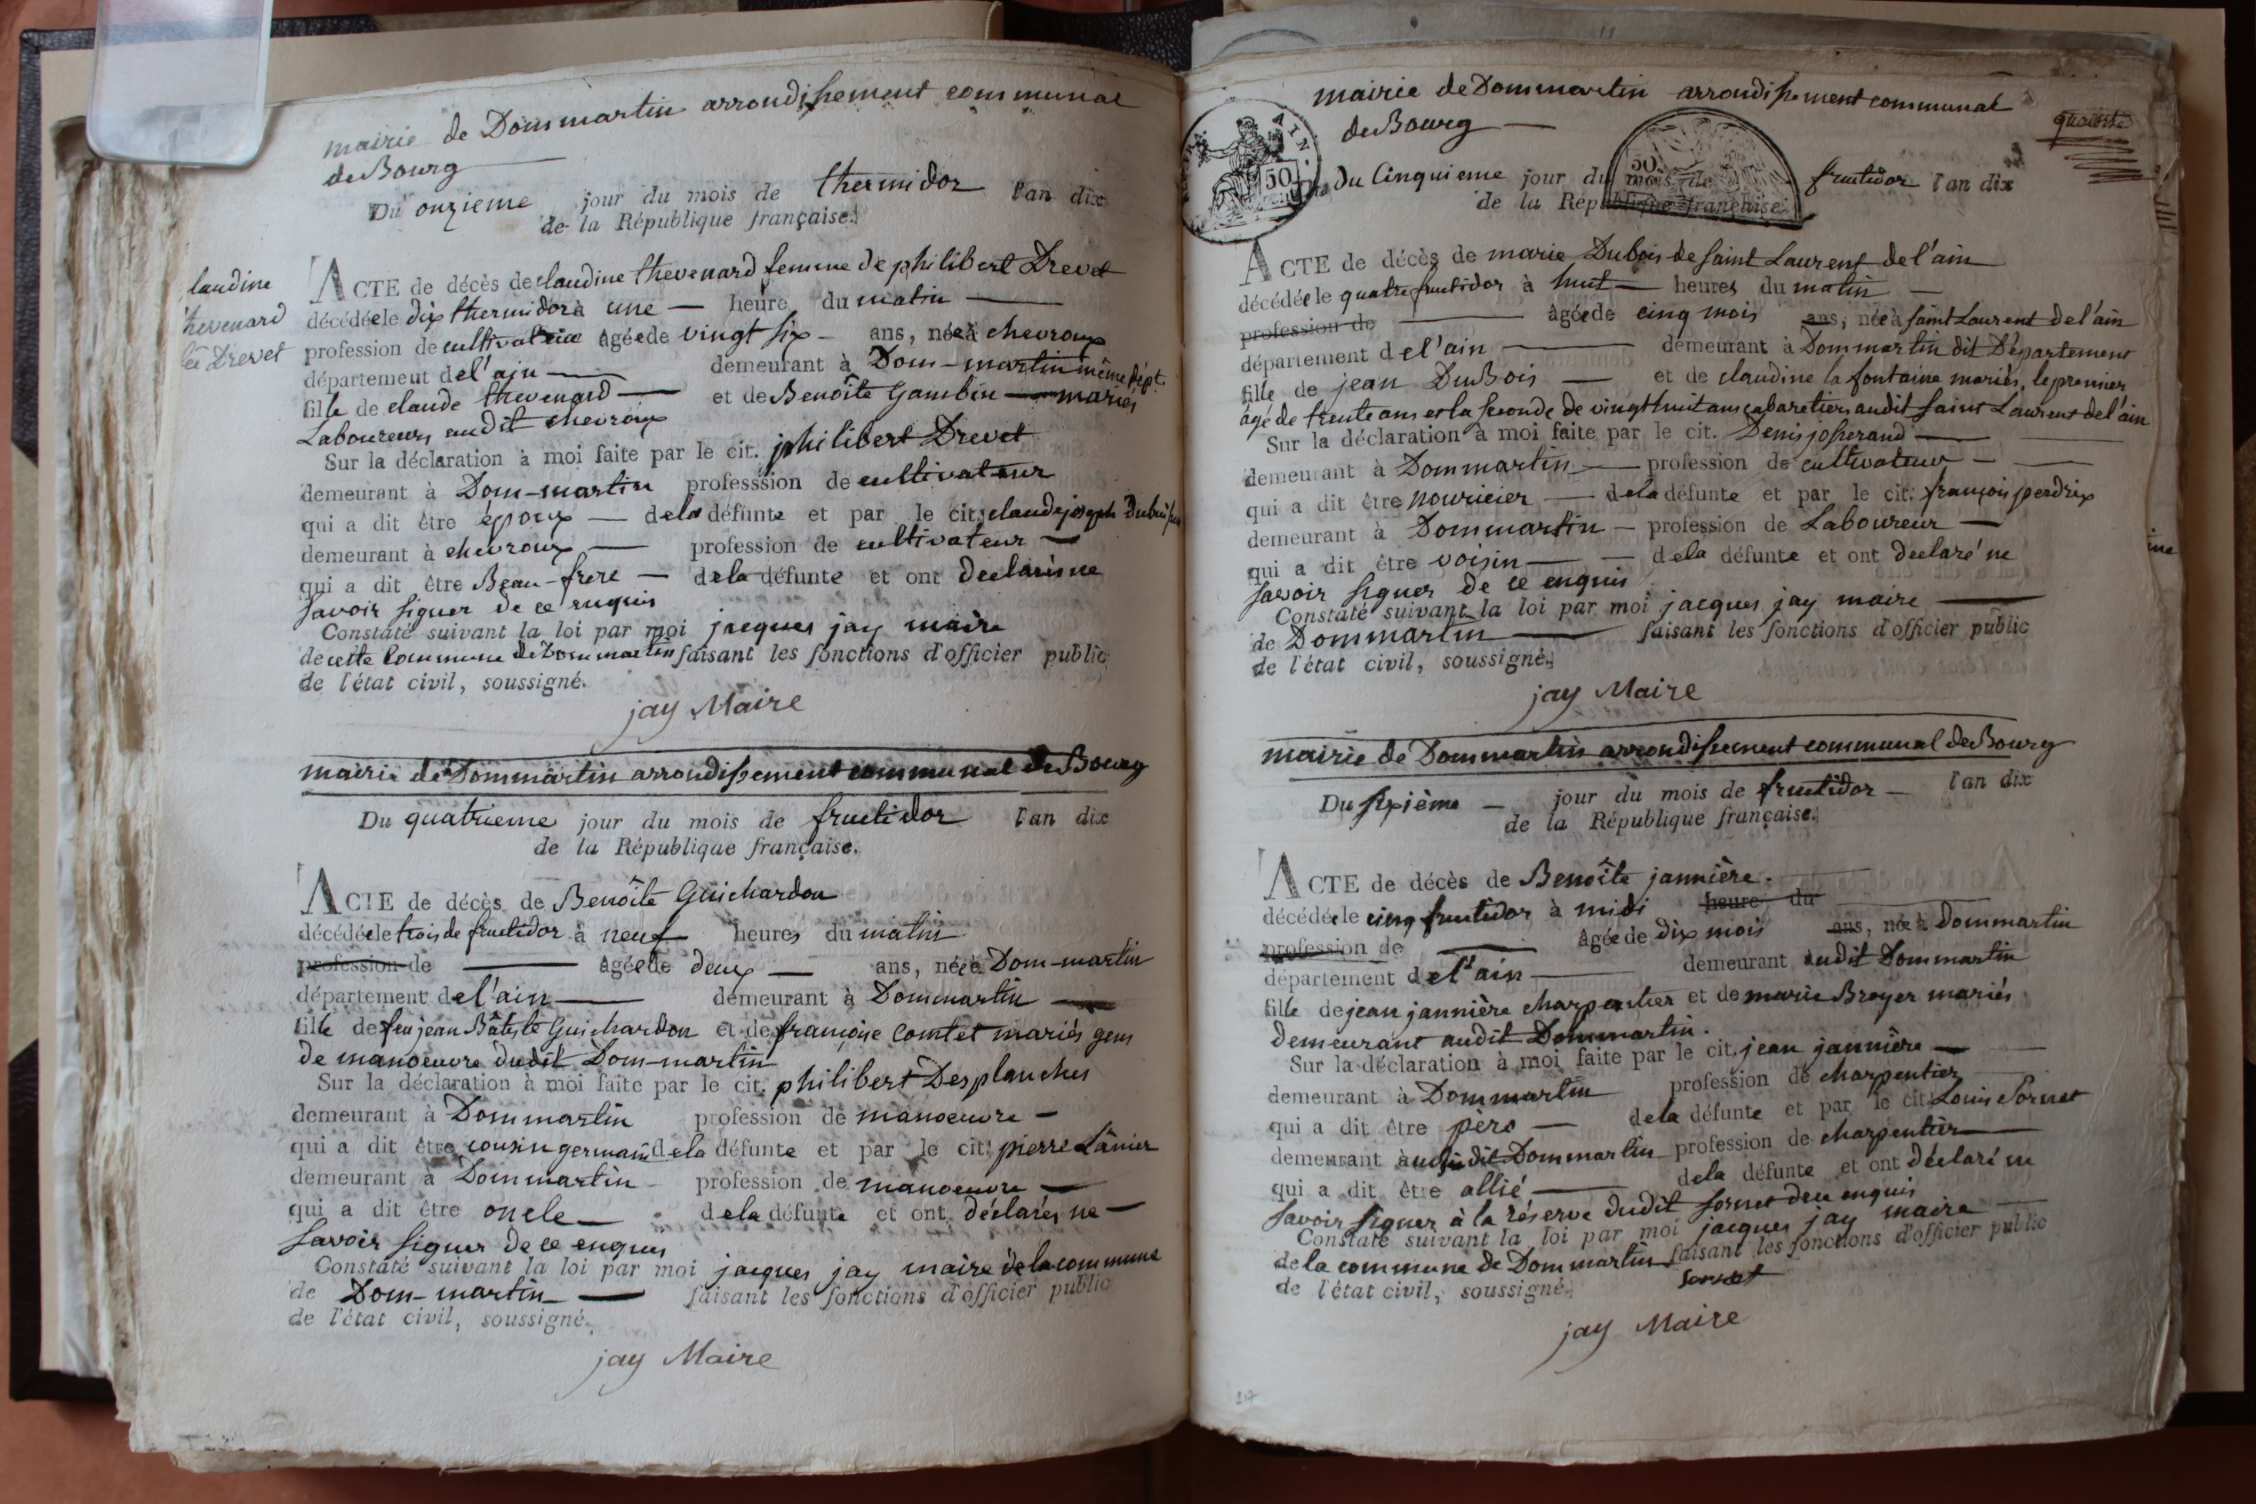 mairie de Dommartin arrondissement communal
de Bourg
Du onzieme jour du mois de thermidor l'an dix
de la République française.
laudine
thevenard
Drevet
ACTE de décès de claudine thevenard femme de philibert Drevet
décédée le dix thermidor à une heure du matin
profession de cultivatrice âgée de vingt six ans, née à chevroux
département de l'ain demeurant à Dom-martin même dépt.
fille de claude thevenard et de Benoîte Gambin mariés
Laboureurs audit chevroux
Sur la déclaration à moi faite par le cit. philibert Drevet
demeurant à Dom-martin professsion de cultivateur
qui a dit être époux de la défunte et par le cit. claude joseph
demeurant à chevroux profession de cultivateur
qui a dit être Beau-frere de la défunte et ont declarés ne
savoir signer de ce enquis
Constaté suivant la loi par moi jacques jay maire
de cette Commune de Dommartin faisant les fonctions d'officier public
de l'état civil, soussigné.
jay Maire
mairie de Dommartin arrondissement communal de Bourg
Du quatrieme jour du mois de fructidor l'an dix
de la République française.
ACTE de décès de Benoîte Guichardon
décédée le trois de fructidor à neuf heures du matin
profession de âgée de deux ans, née à Dom-martin
département de l'ain demeurant à Dommartin
fille de feu jean Bâtiste Guichardon et de françoise Comtet mariés gens
de manoeuvre dudit Dom-martin
Sur la déclaration à moi faite par le cit. philibert Desplanches
demeurant à Dommartin profession de manoeuvre
qui a dit être cousin germain de la défunte et par le cit. pierre Lânier
demeurant à Dommartin profession de manoeuvre
qui a dit être oncle de la défunte et ont déclarés ne
savoir signer de ce enquis
Constaté suivant la loi par moi jacques jay maire de la commune
de Dom-martin faisant les fonctions d'officier public
de l'état civil, soussigné.
jay Maire
mairie de Dommartin arrondissement communal
de Bourg
AIN.
50
50
Du Cinquieme jour du mois de fructidor l'an dix
de la République française.
ACTE de décès de marie Dubois de saint Laurent de l'ain
décédée le quatre fructidor à huit heures du matin
profession de âgée de cinq mois ans, née à saint Laurent de l'ain
département de l'ain demeurant à Dommartin dit Département
fille de jean DuBois et de claudine la fontaine mariés, le premier
âgé de trente ans et la seconde de vingt huit ans cabaretiers audit saint Laurent de l'ain
Sur la déclaration à moi faite par le cit. Denis josserand
demeurant à Dommartin profession de cultivateur
qui a dit être nouricier de la défunte et par le cit. françois perdrix
demeurant à Dommartin profession de Laboureur
qui a dit être voisin de la défunte et ont declaré ne
savoir signer de ce enquis
Constaté suivant la loi par moi jacques jay maire
de Dommartin faisant les fonctions d'officier public
de l'état civil, soussigné.
jay Maire
mairie de Dommartin arrondissement communal de Bourg
Du sixième jour du mois de fructidor l'an dix
de la République française.
ACTE de décès de Benoîte jannière.
décédée le cinq fructidor à midi heure du
profession de âgée de dix mois ans, née à Dommartin
département de l'ain demeurant audit Dommartin
fille de jean jannière charpentier et de marie Broyer mariés
demeurant audit Dommartin.
Sur la déclaration à moi faite par le cit. jean jannière
demeurant à Dommartin profession de charpentier
qui a dit être père de la défunte et par le cit. Louis Sornet
demeurant audit Dommartin profession de charpentier
qui a dit être allié de la défunte et ont déclaré ne
savoir signer à la réserve dudit sornet de ce enquis
Constaté suivant la loi par moi jacques jay maire
de la commune de Dommartin faisant les fonctions d'officier public
de l'état civil, soussigné.
sornet
jay Maire